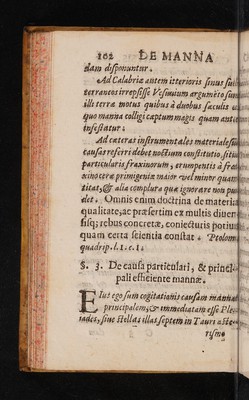 102 DE MANNA
dam disponuntur.
Ad Calabriæ autem itterioris sinus sub
terraneos irrepsisse Vesuuium argumẽto sunt
illi terræ motus quibus à duobus sæculis ex
quo manna colligi captum magis quam antea
infestatur.
Ad cæteras instrumentales materiales
causas referri debet noctium constitutio, situs
particularis fraxinorum, erumpentis à fra-
xino ceræ primigenia maior vel minor quan-
titat, & alia complura quæ ignorare non pu-
det. Omnis enim doctrina de materiæ
qualitate, ac præsertim ex multis diuer-
sisq; rebus concretæ, coniecturis potius
quam certa scientia constat. Ptolom.
quadrip. l. 1. c. 1.
§. 3. De causa particulari, & princi-
pali efficiente mannæ.
Eius ego sum cogitationis causam mannæ
principalem, & immediatam esse Ple-
iades, siue stellas illas septem in Tauri aste-
rismo